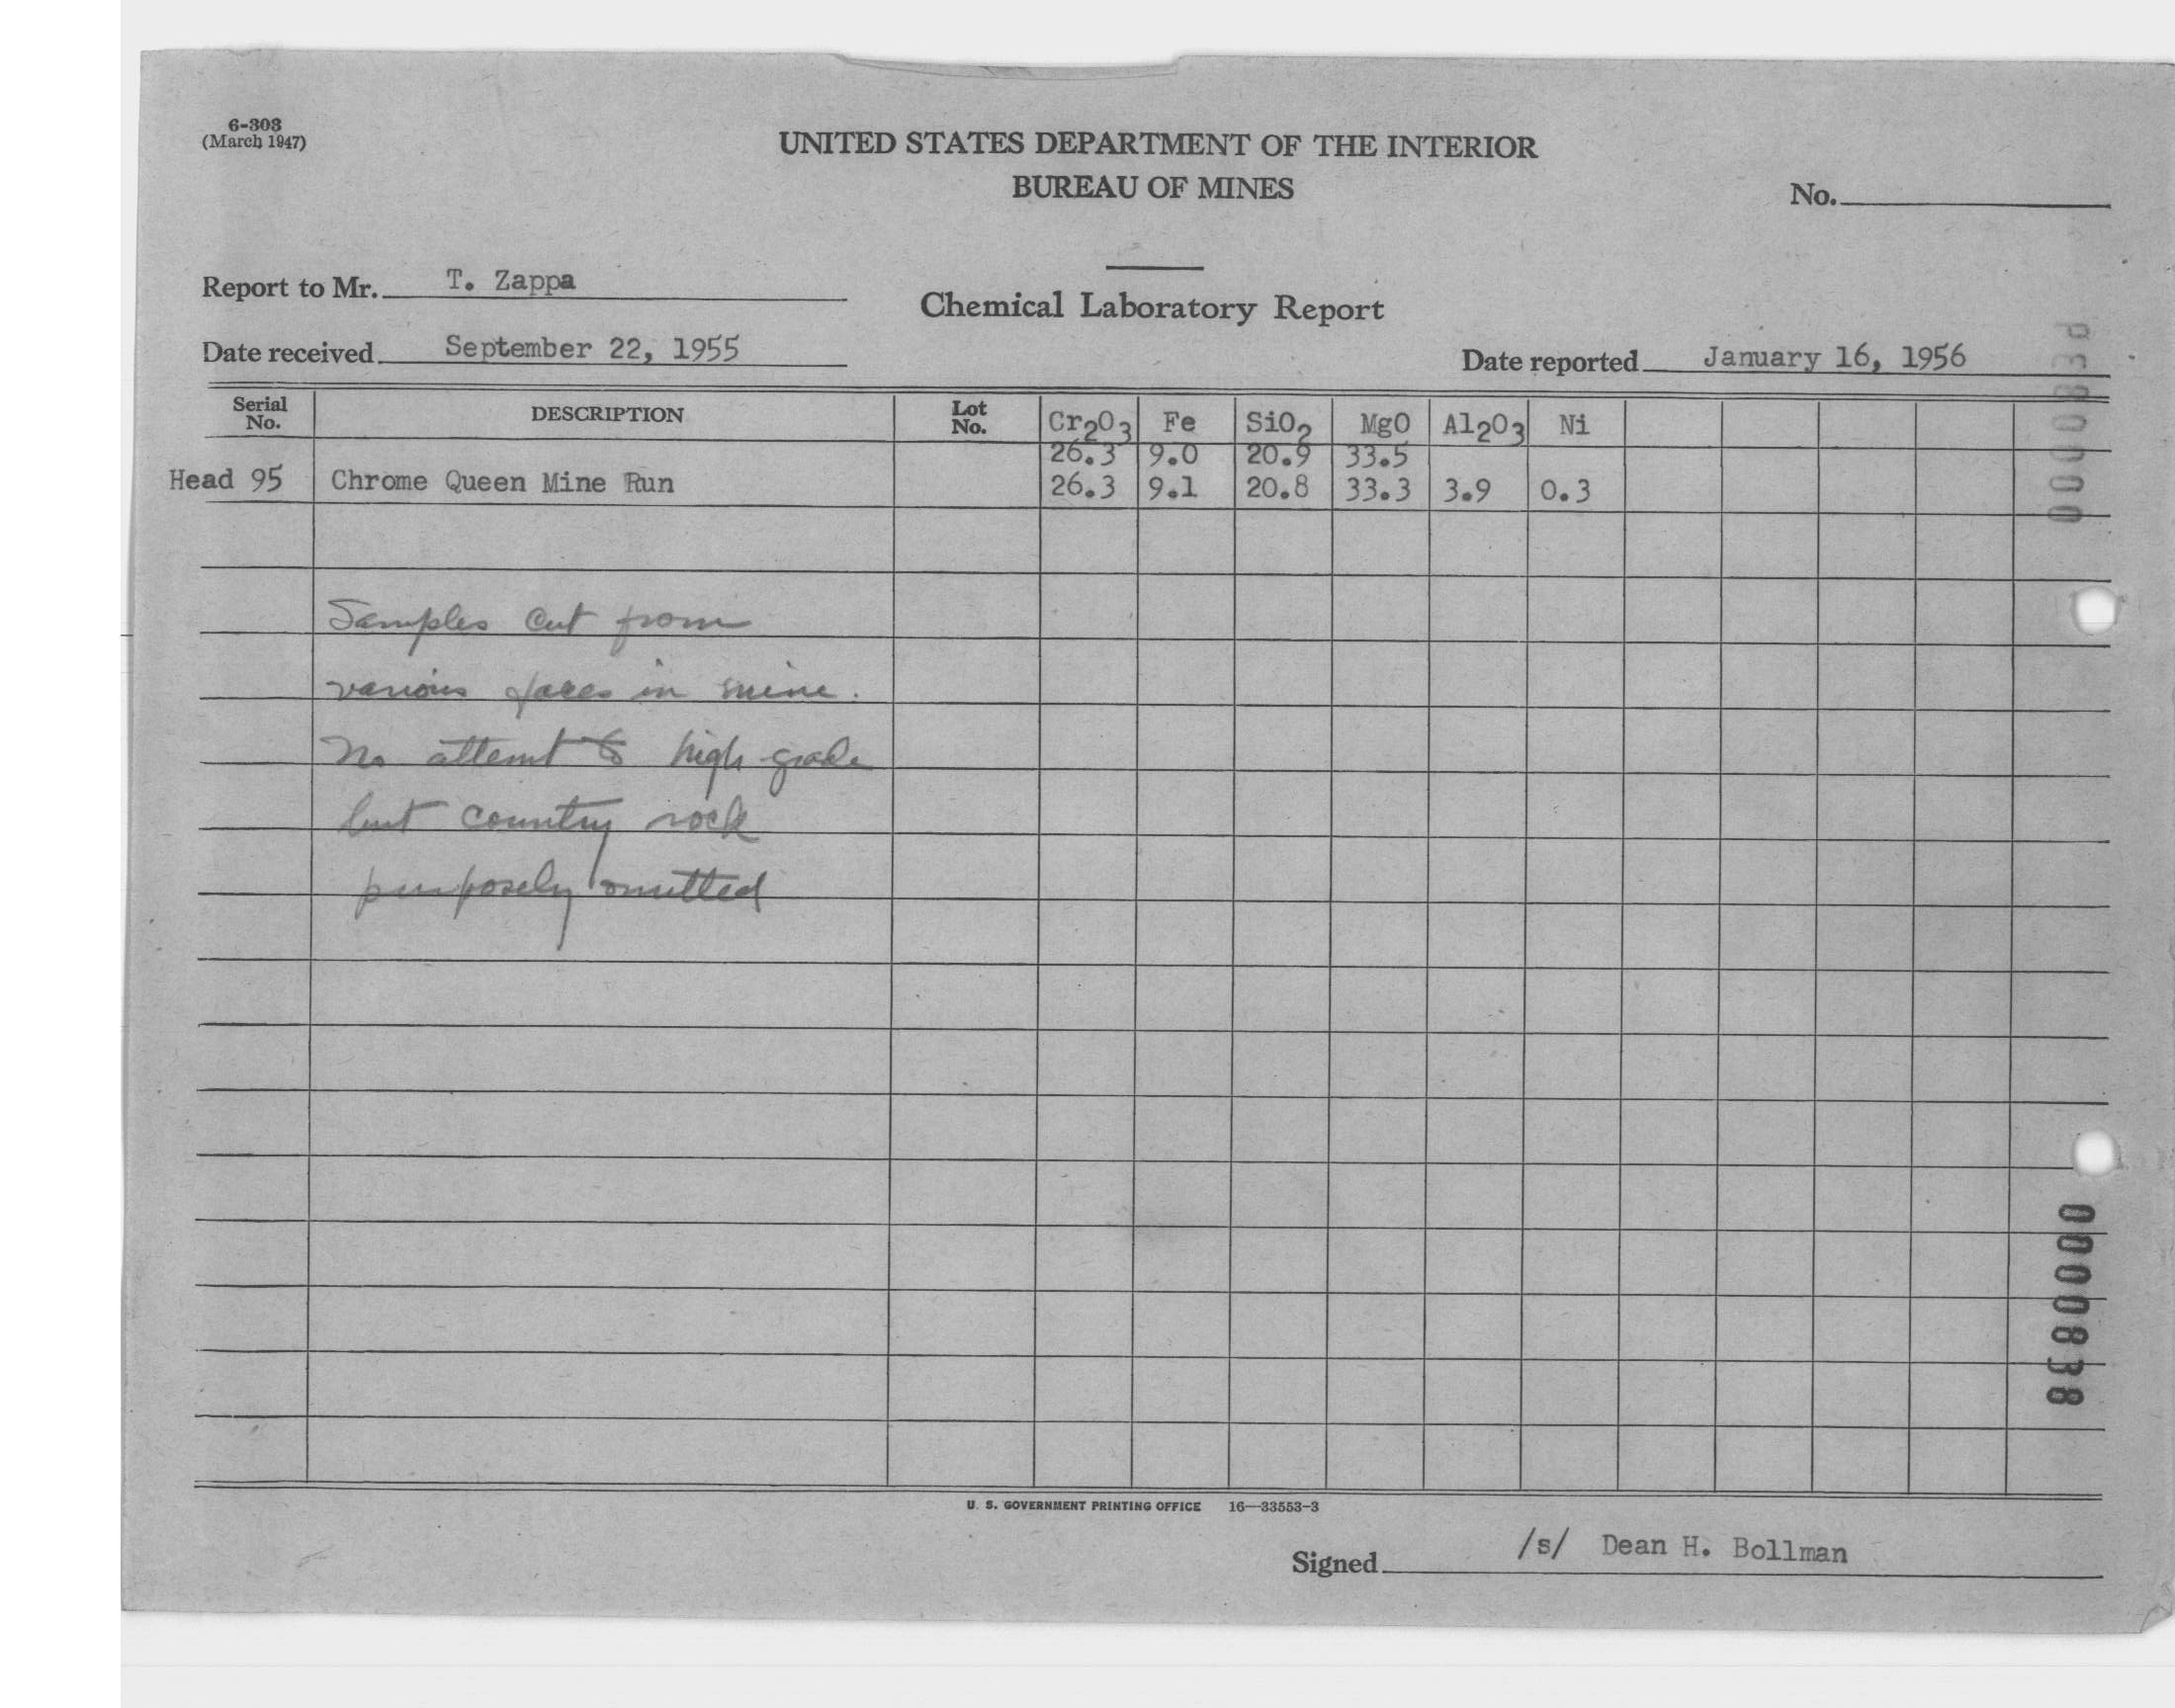 6-303
(March 1947)
UNITED STATES DEPARTMENT OF THE INTERIOR
BUREAU OF MINES
No.
Report to Mr. T. Zappa
Chemical Laboratory Report
Date received September 22, 1955
Date reported January 16, 1956
Serial No. DESCRIPTION Lot No. Cr2O3 Fe SiO2 MgO Al2O3 Ni
26.3 9.0 20.9 33.5
Head 95 Chrome Queen Mine Run 26.3 9.1 20.8 33.3 3.9 0.3
Samples cut from
various faces in mine.
No attemt to high grade
but country rock
purposely omitted
0000838
0000838
U. S. GOVERNMENT PRINTING OFFICE 16—33553-3
Signed /s/ Dean H. Bollman